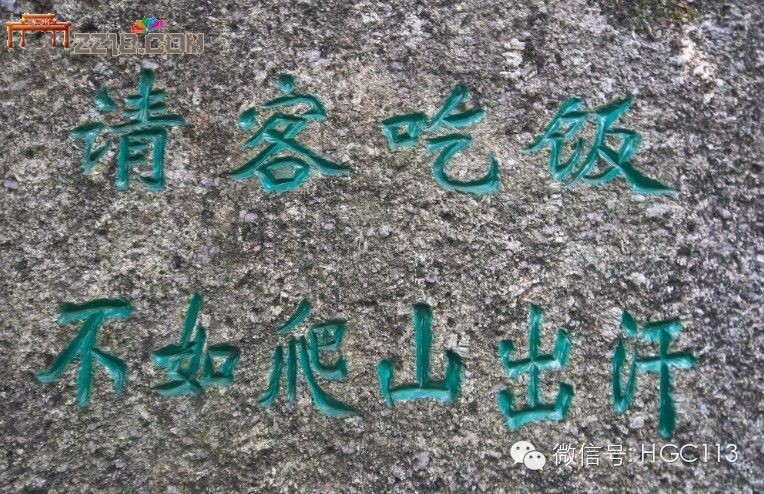 ZZ18.COM
请客吃饭
不如爬山出汗
微信号: HGC113